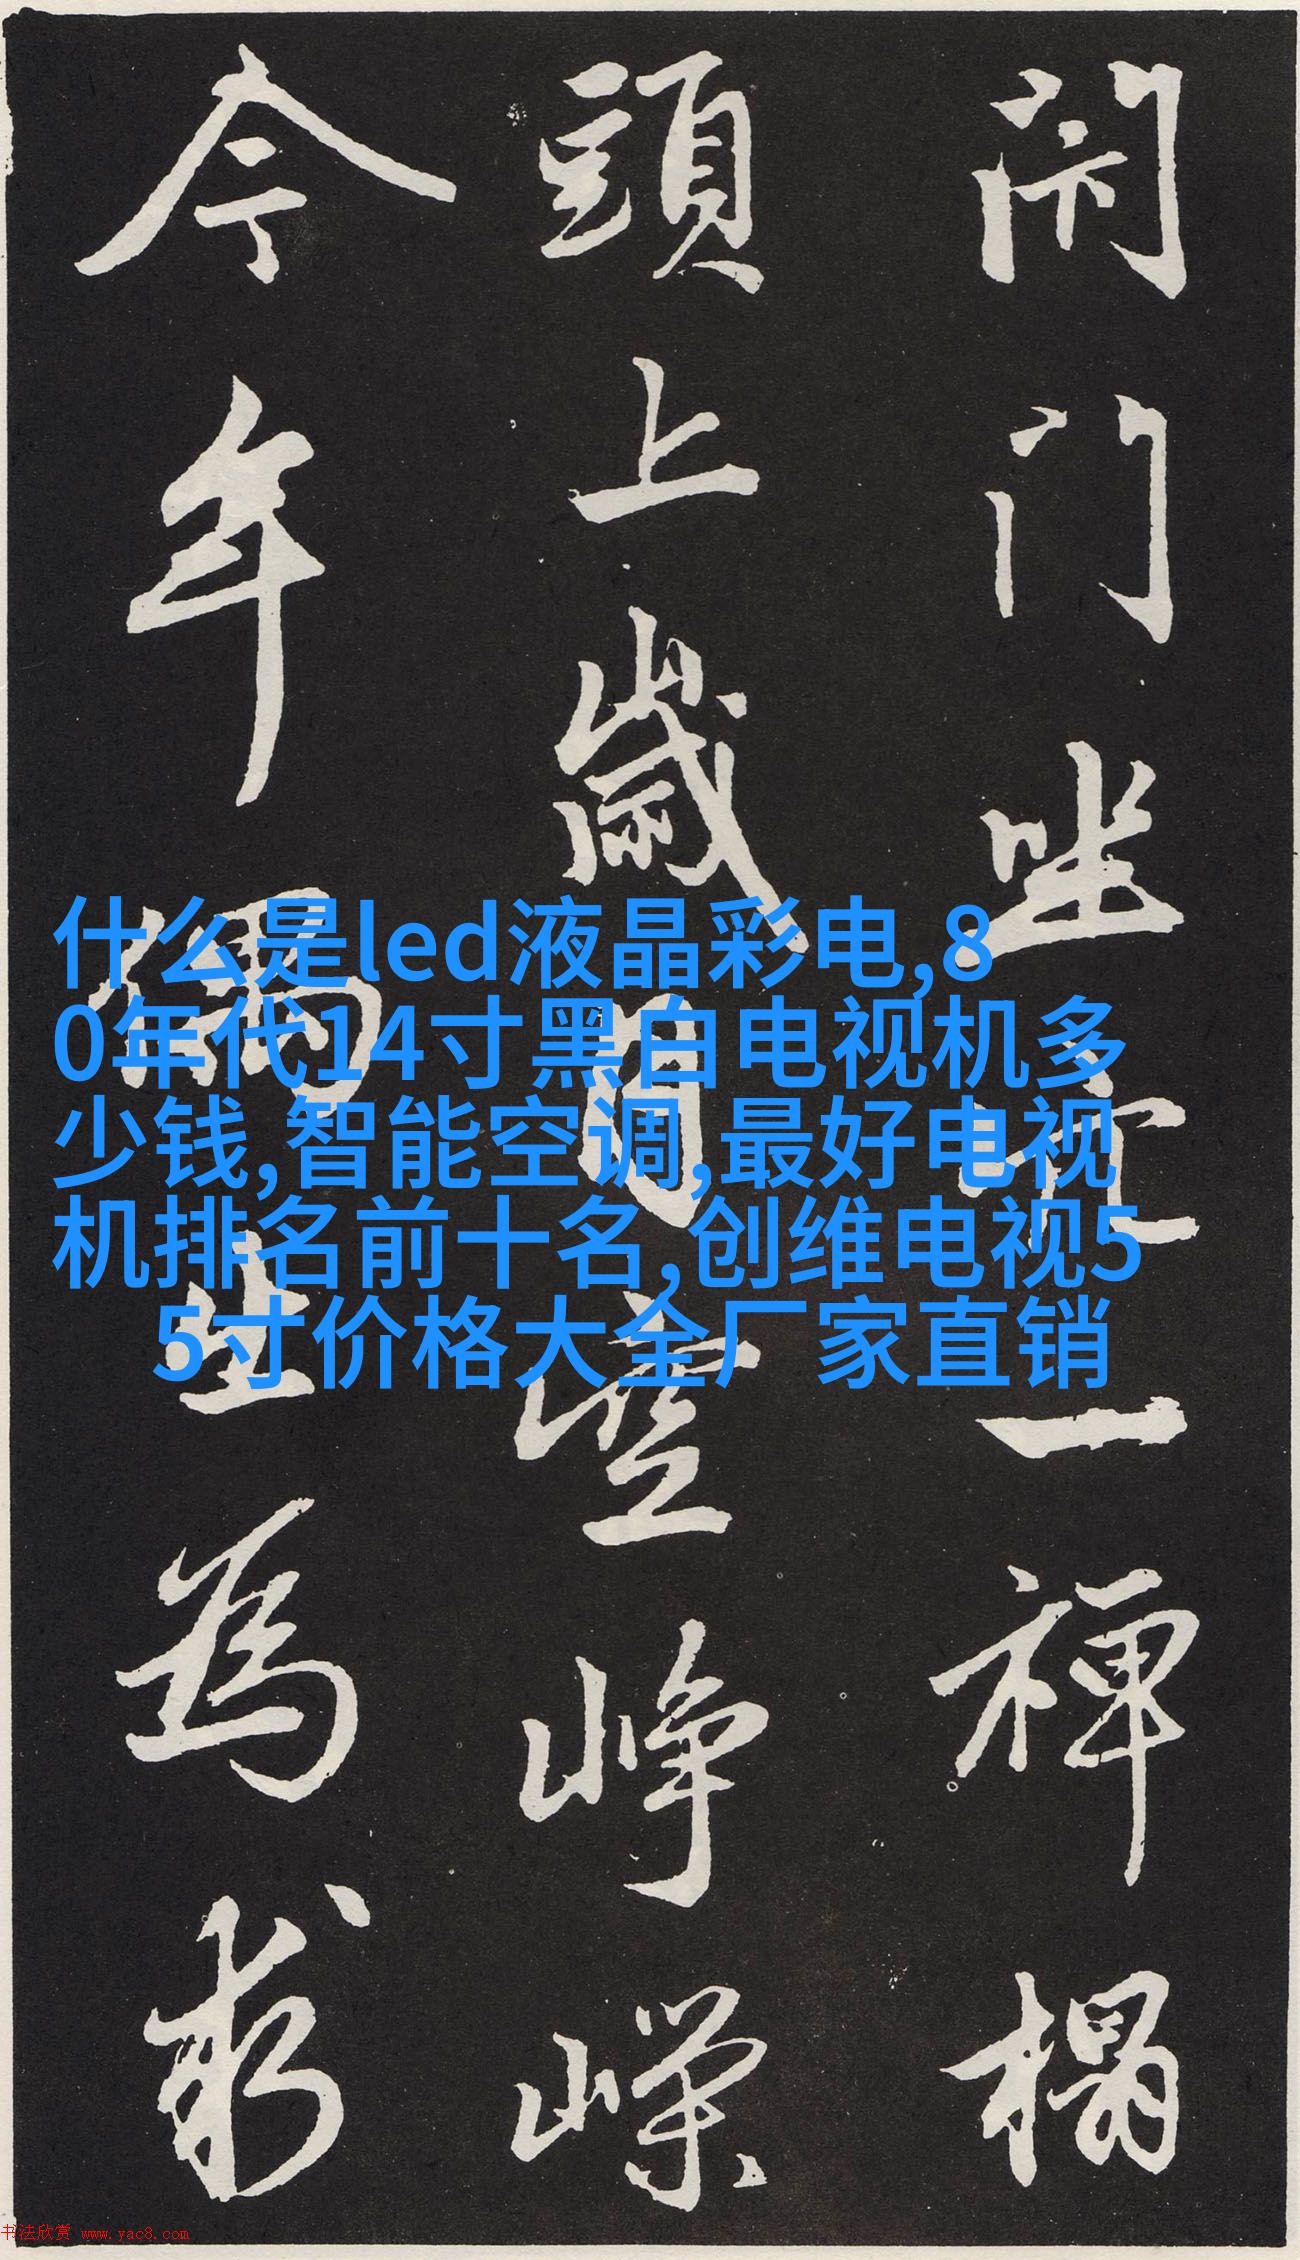 閇門坐穴一禪榻
頭上歲月空崢嶸
今年偶出為求
什么是led液晶彩电,8
0年代14寸黑白电视机多
少钱,智能空调,最好电视
机排名前十名,创维电视5
5寸价格大全厂家直销
书法欣赏 www.yac8.com